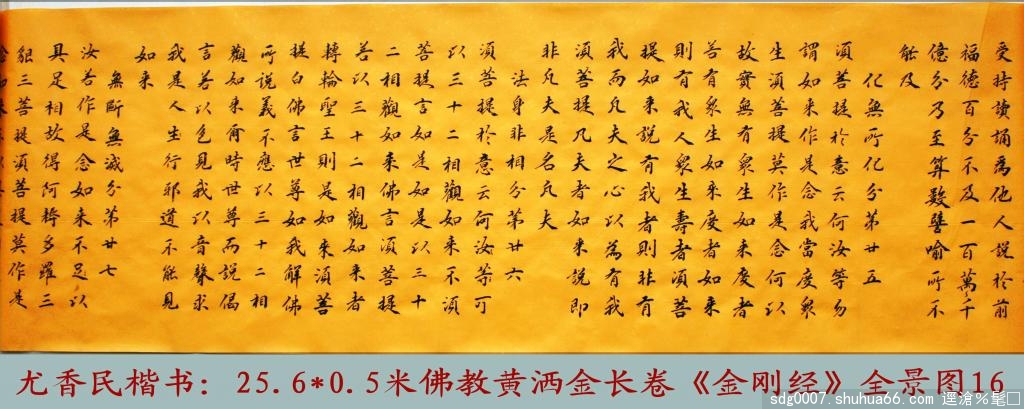 受持讀誦為他人說於前
福德百分不及一百萬千
億分乃至算數譬喻所不
能及
化無所化分第廿五
須菩提於意云何汝等勿
謂如來作是念我當度眾
生須菩提莫作是念何以
故實無有眾生如來度者
若有眾生如來度者如來
則有我人眾生壽者須菩
提如來說有我者則非有
我而凡夫之心以為有我
須菩提凡夫者如來說即
非凡夫是名凡夫
法身非相分第廿六
須菩提於意云何汝等可
以三十二相觀如來不須
菩提言如是如是以三十
二相觀如來佛言須菩提
若以三十二相觀如來者
轉輪聖王則是如來須菩
提白佛言世尊如我解佛
所說義不應以三十二相
觀如來爾時世尊而說偈
言若以色見我以音聲求
我是人生行邪道不能見
如來
無斷無滅分第廿七
汝若作是念如來不足以
具足相故得阿耨多羅三
貌三菩提須菩提莫作是
尤香民楷书：25.6*0.5米佛教黄洒金长卷《金刚经》全景图16
sdg0007.shuhua66.com